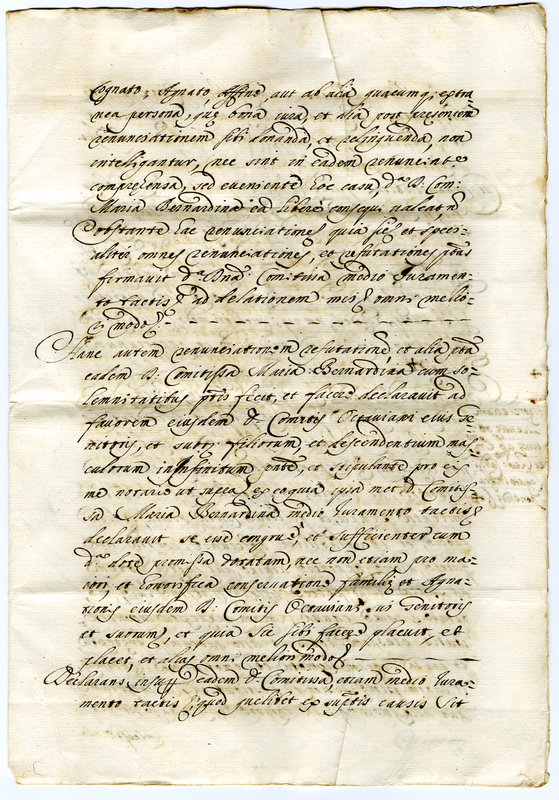 Cognato, Agnato, Affine, aut ab alia quacumq; extra
nea persona, que bona iura, et alia post presentem
renunciationem sibi donanda, et relinquenda, non
intelligantur, nec sint in eadem renunciatõe
comprehensa, sed eveniente hoc casu, dª D. Com:
Maria Bernardina ea liberè consequi valeat, nõ
obstante hac renunciatione, quia sic, et speci-
aliter omnes renunciationes, et refutationes ptãs
firmavit dª Dnã Comitissa medio Iuramen-
to tactis ad delationem mei omni melio-
ri modo
Hanc autem renunciationem refutationẽ, et alia ptã
eadem D. Comitissa Maria Bernardina cum so-
lemnitatibus ptis fecit, et facere declaravit ad
favorem eiusdem D. Comitis Octaviani eius
et filiorum, et descendentium mas-
culorum in infinitum pnte, et stipulante pro eis
me notario ut supra, ex eo quia ipsa met D. Comitis
sa Maria Bernardina medio Iuramento tactis
declaravit se esse congruè, et sufficienter cum
dª dote promissa dotatam, nec non etiam pro ma-
iori, et honorifica conservatione familiæ et Agna-
tionis eiusdem D. Comitis Octaviani sui Genitoris
et suorum, et quia sic sibi facere placuit, et
placet, et alias omni meliori modo
Declarans insup eadem D. Comitissa, etiam medio Iura-
mento tactis quod quelibet ex suptis causis sit